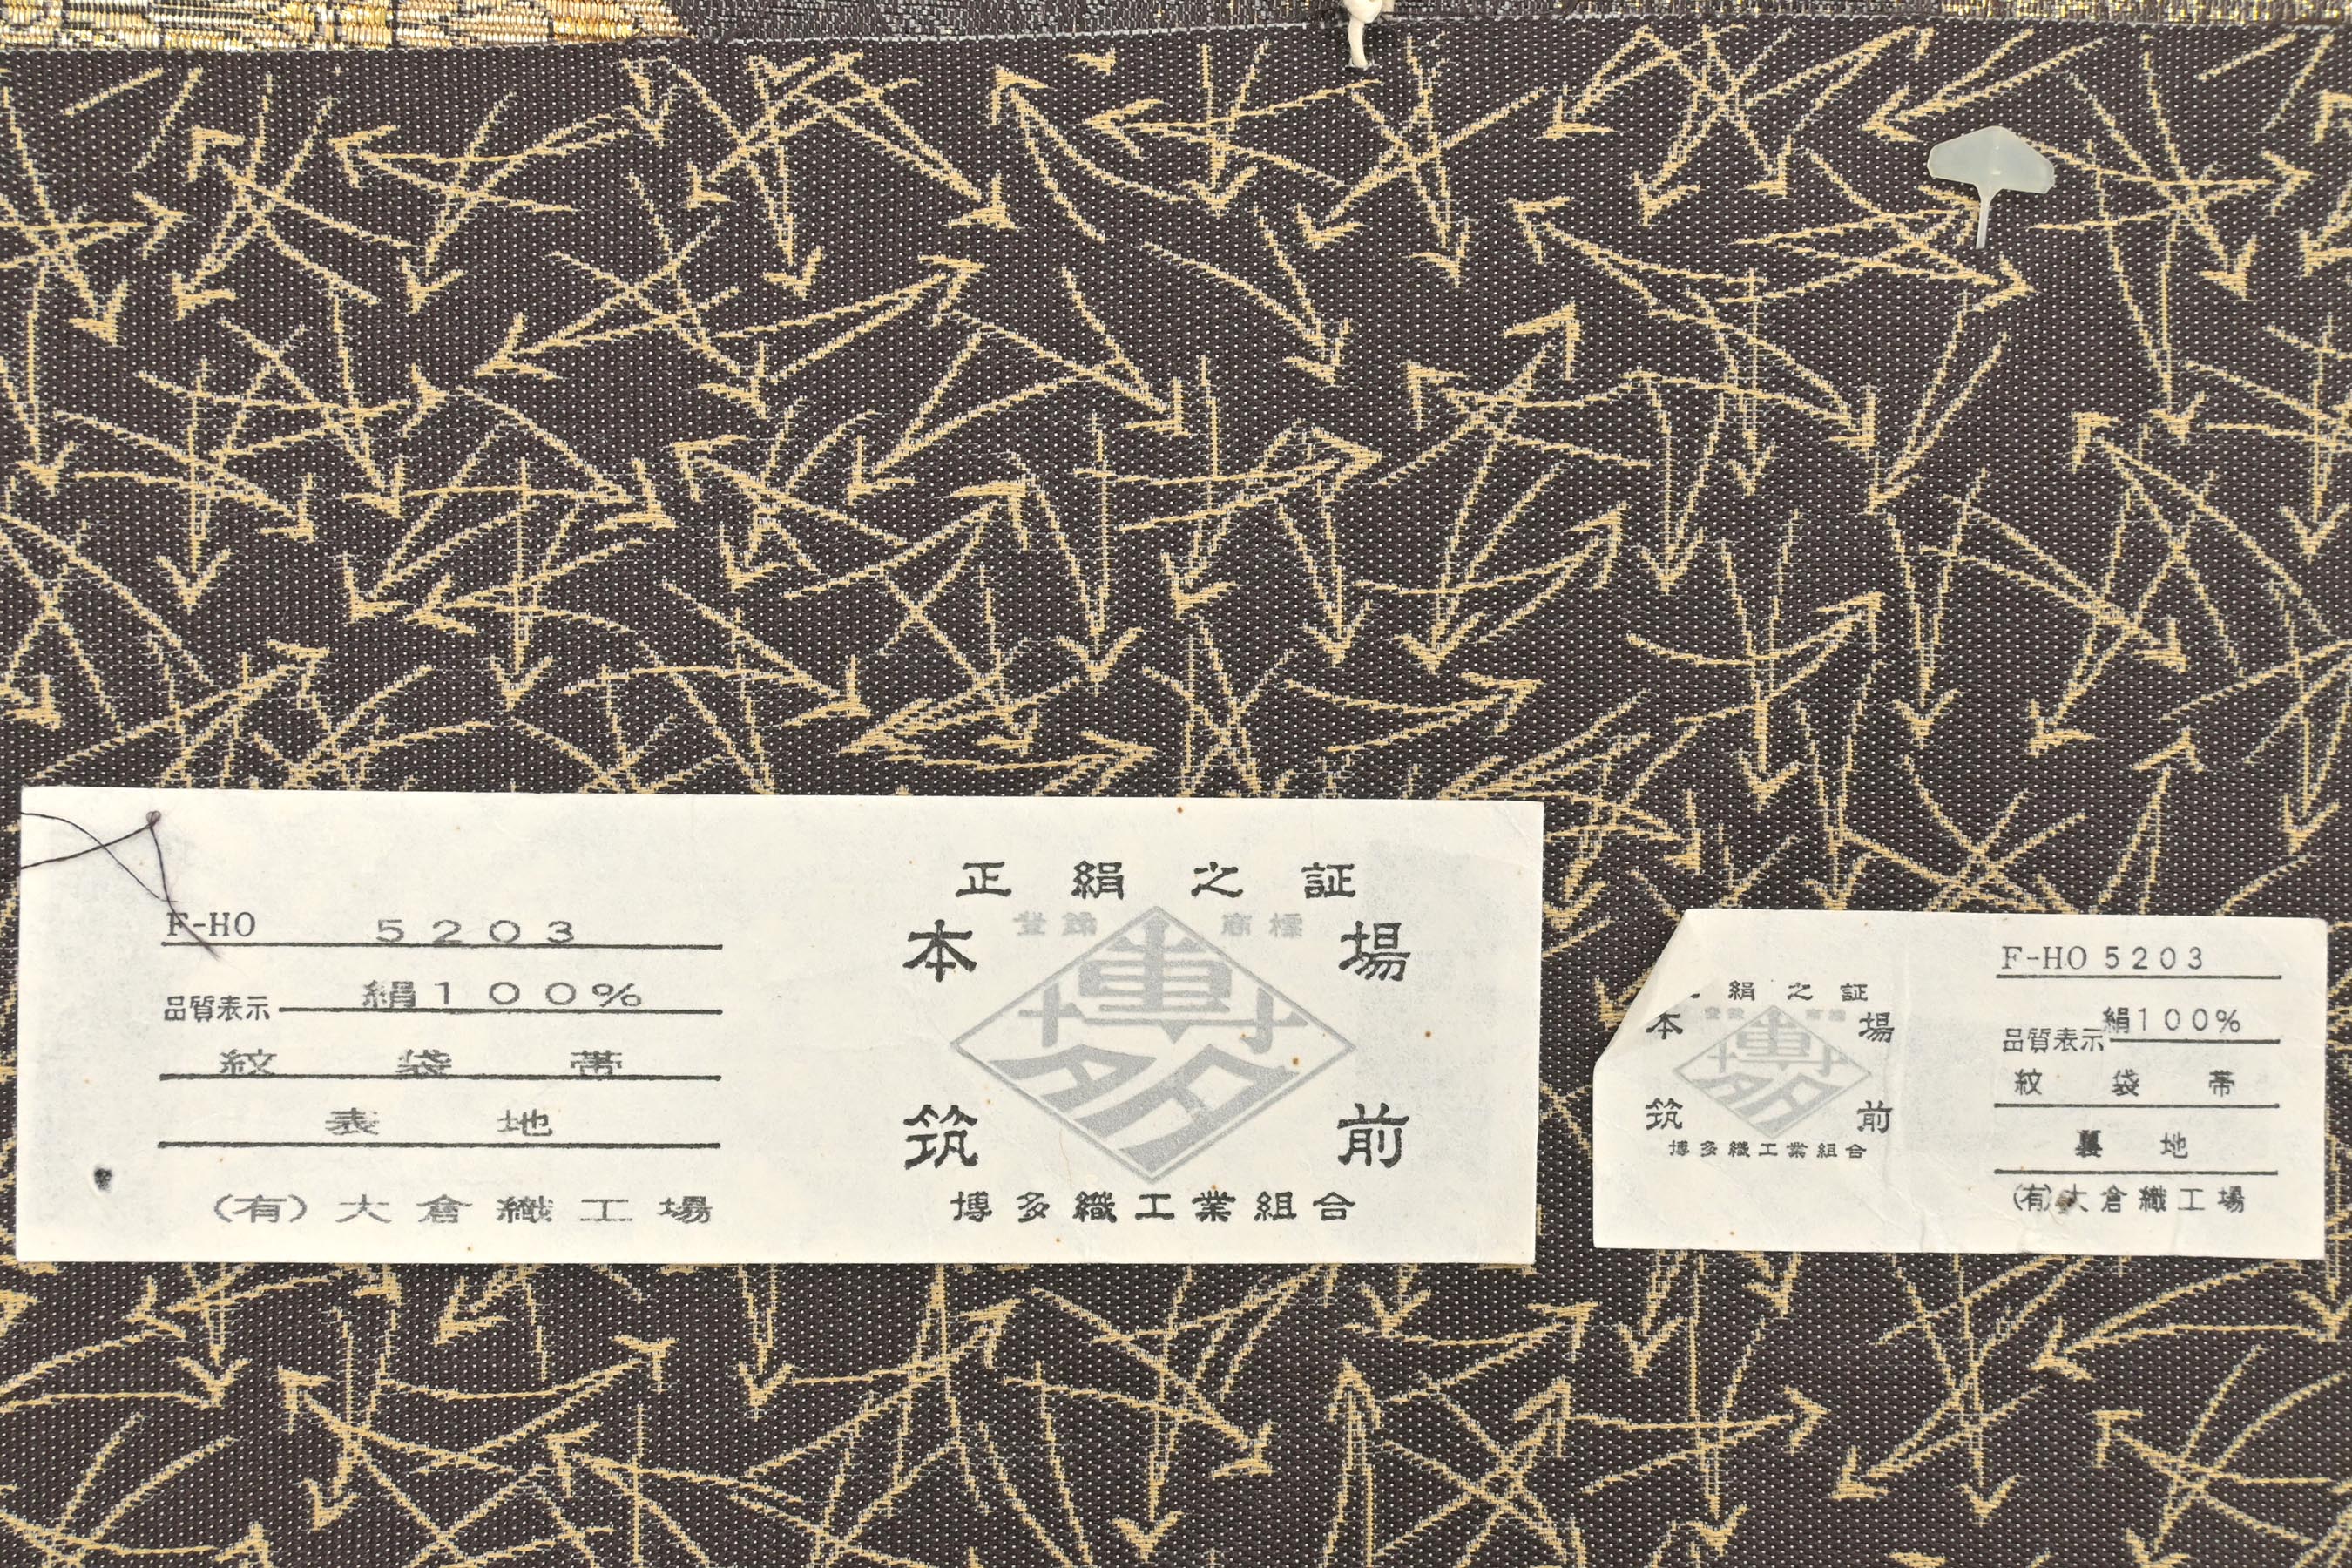 F-HO 5203
品質表示 絹100%
紋 袋 帯
表 地
(有)大倉織工場
正絹之証
登録 商標
本 場
博多
筑 前
博多織工業組合
絹之証
登録 商標
本 場
博多
筑 前
博多織工業組合
F-HO 5203
品質表示 絹100%
紋 袋 帯
裏 地
(有)大倉織工場